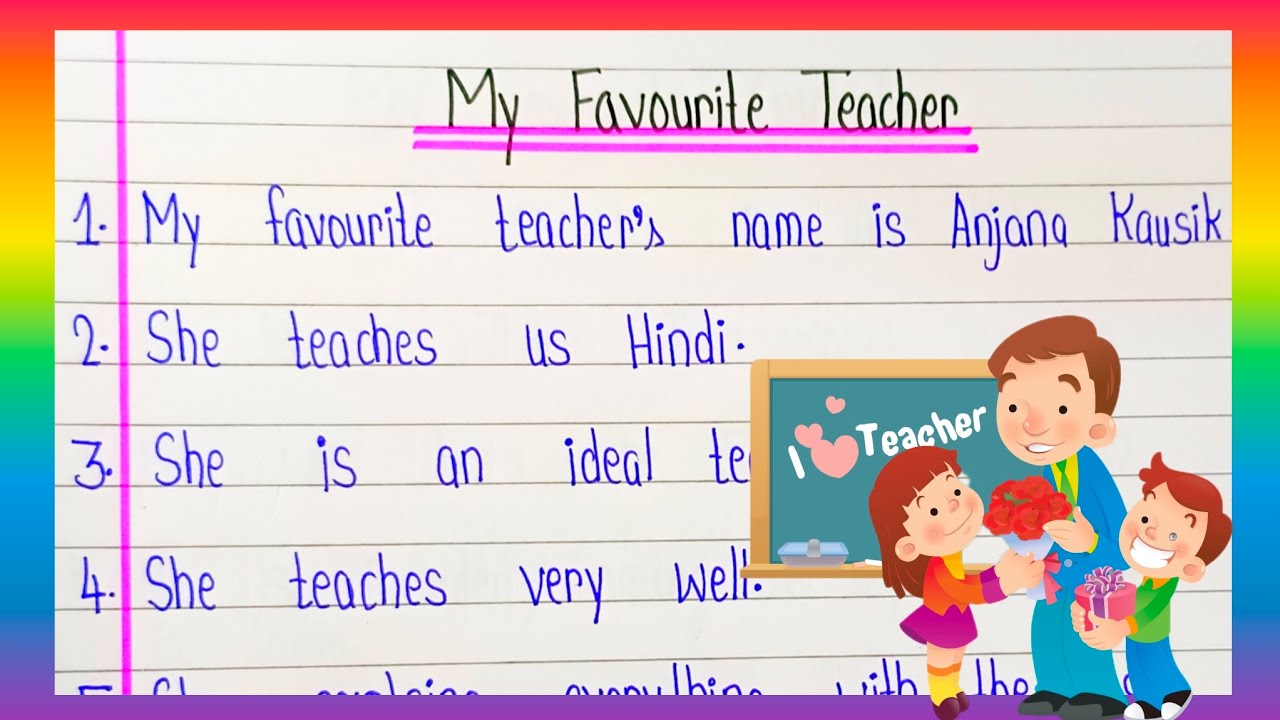 My Favourite Teacher
1. My favourite teacher's name is Anjana Kausik
2. She teaches us Hindi.
3. She is an ideal
4. She teaches very well.
5. She explains everything with the
I Teacher